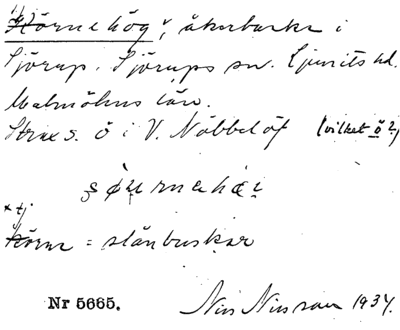 Hörnehög, åkerbacke i
Sjörup. Sjörups sn. Ljunits hd.
Malmöhus län.
Strax s. ö i V. Nöbbelöf (vilket ö?)
tj
= slånbuskar
Nr 5665. Nils Nilsson 1934.